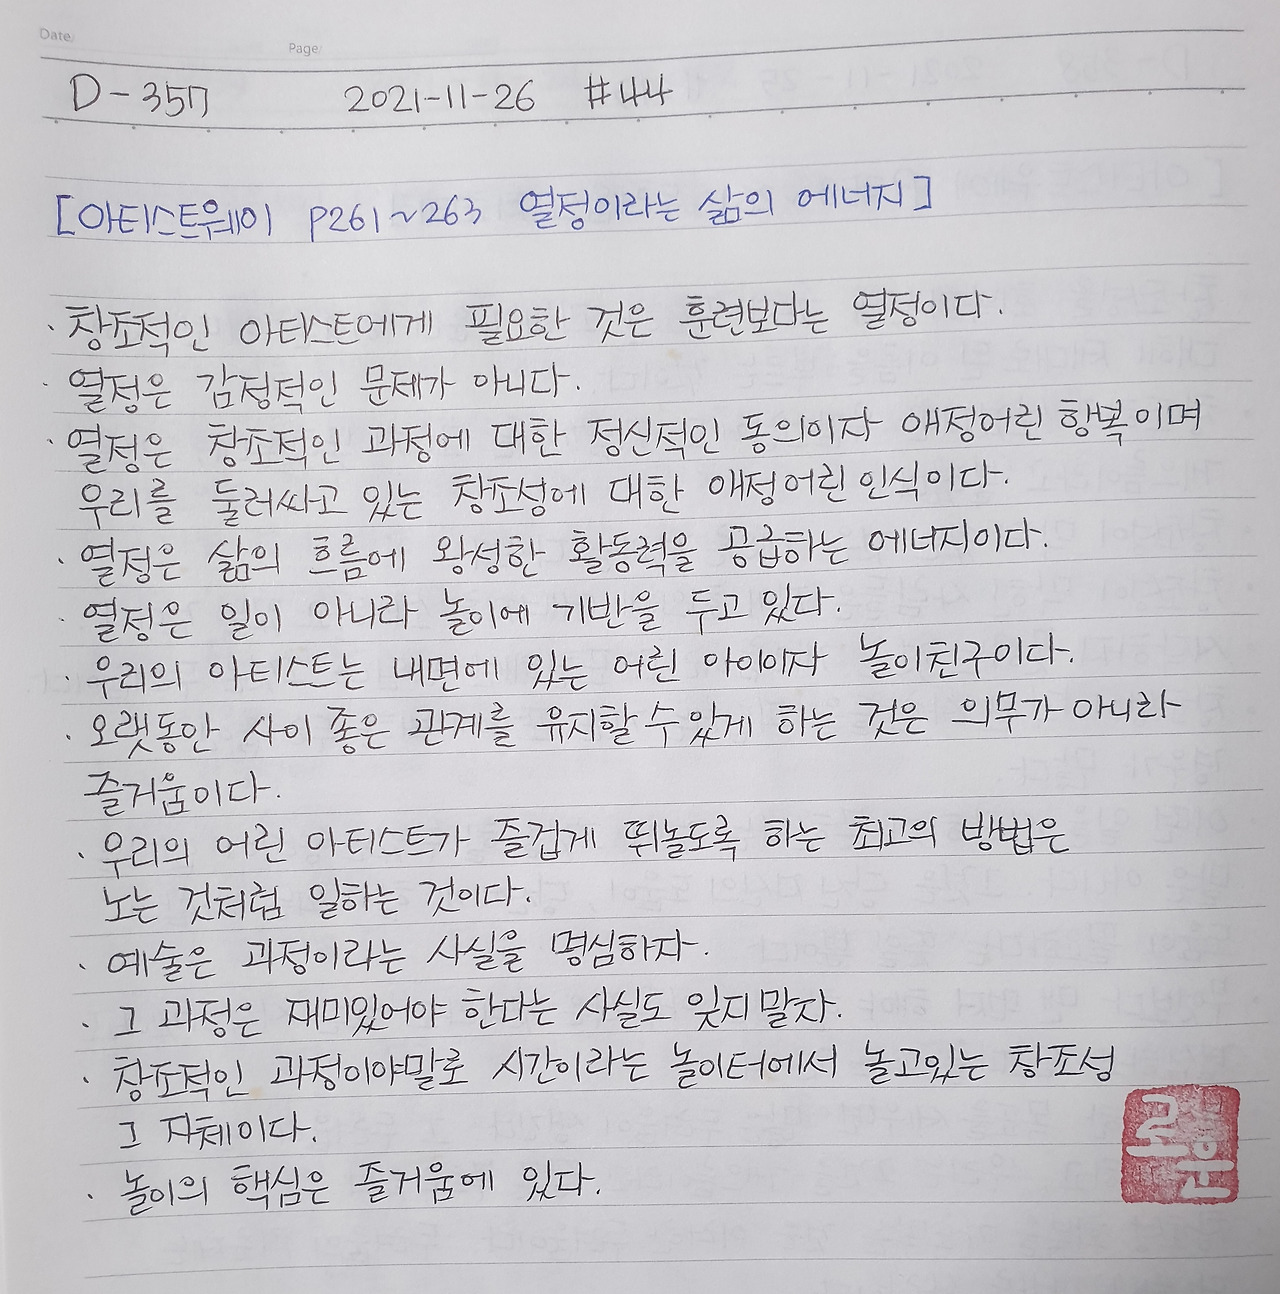 Date/
Page/
D-357 2021-11-26 #44
[아티스트웨이 P261~263 열정이라는 삶의 에너지]
· 창조적인 아티스트에게 필요한 것은 훈련보다는 열정이다.
· 열정은 감정적인 문제가 아니다.
· 열정은 창조적인 과정에 대한 정신적인 동의이자 애정어린 항복이며
우리를 둘러싸고 있는 창조성에 대한 애정어린 인식이다.
· 열정은 삶의 흐름에 왕성한 활동력을 공급하는 에너지이다.
· 열정은 일이 아니라 놀이에 기반을 두고 있다.
· 우리의 아티스트는 내면에 있는 어린 아이이자 놀이친구이다.
· 오랫동안 사이 좋은 관계를 유지할 수 있게 하는 것은 의무가 아니라
즐거움이다.
· 우리의 어린 아티스트가 즐겁게 뛰놀도록 하는 최고의 방법은
노는 것처럼 일하는 것이다.
· 예술은 과정이라는 사실을 명심하자.
· 그 과정은 재미있어야 한다는 사실도 잊지 말자.
· 창조적인 과정이야말로 시간이라는 놀이터에서 놀고있는 창조성
그 자체이다.
· 놀이의 핵심은 즐거움에 있다.
로운